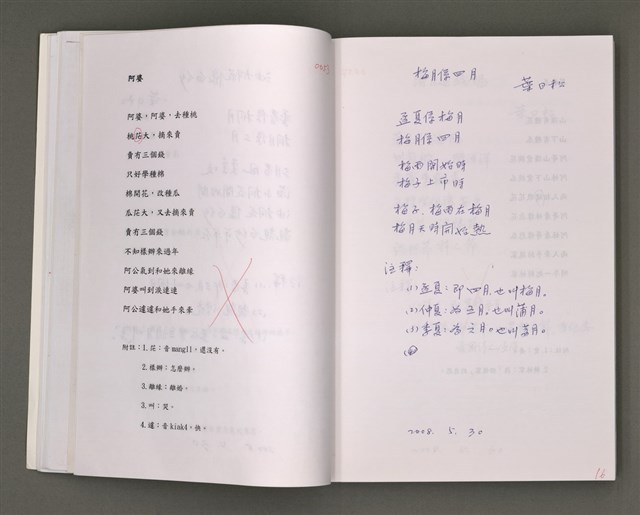 阿婆
阿婆，阿婆，去種桃
桃花大，摘來賣
賣冇三個錢
只好學種棉
棉開花，改種瓜
瓜花大，又去摘來賣
賣冇三個錢
不知樣辦來過年
阿公氣到和她來離緣
阿婆叫到淚漣漣
阿公遽遽和她手來牽
附註：1. 吂：音mang11，還沒有。
2. 樣辦：怎麼辦。
3. 離緣：離婚。
3. 叫：哭。
4. 遽：音kiak4，快。
梅月係四月
葉日松
孟夏係梅月
梅月係四月
梅雨開始時
梅子上市時
梅子、梅雨在梅月
梅月天時開始熱
注釋：
(1) 孟夏：即四月，也叫梅月。
(2) 仲夏：為五月。也叫蒲月。
(3) 季夏：為六月。也叫荔月。
2008. 5. 30
16